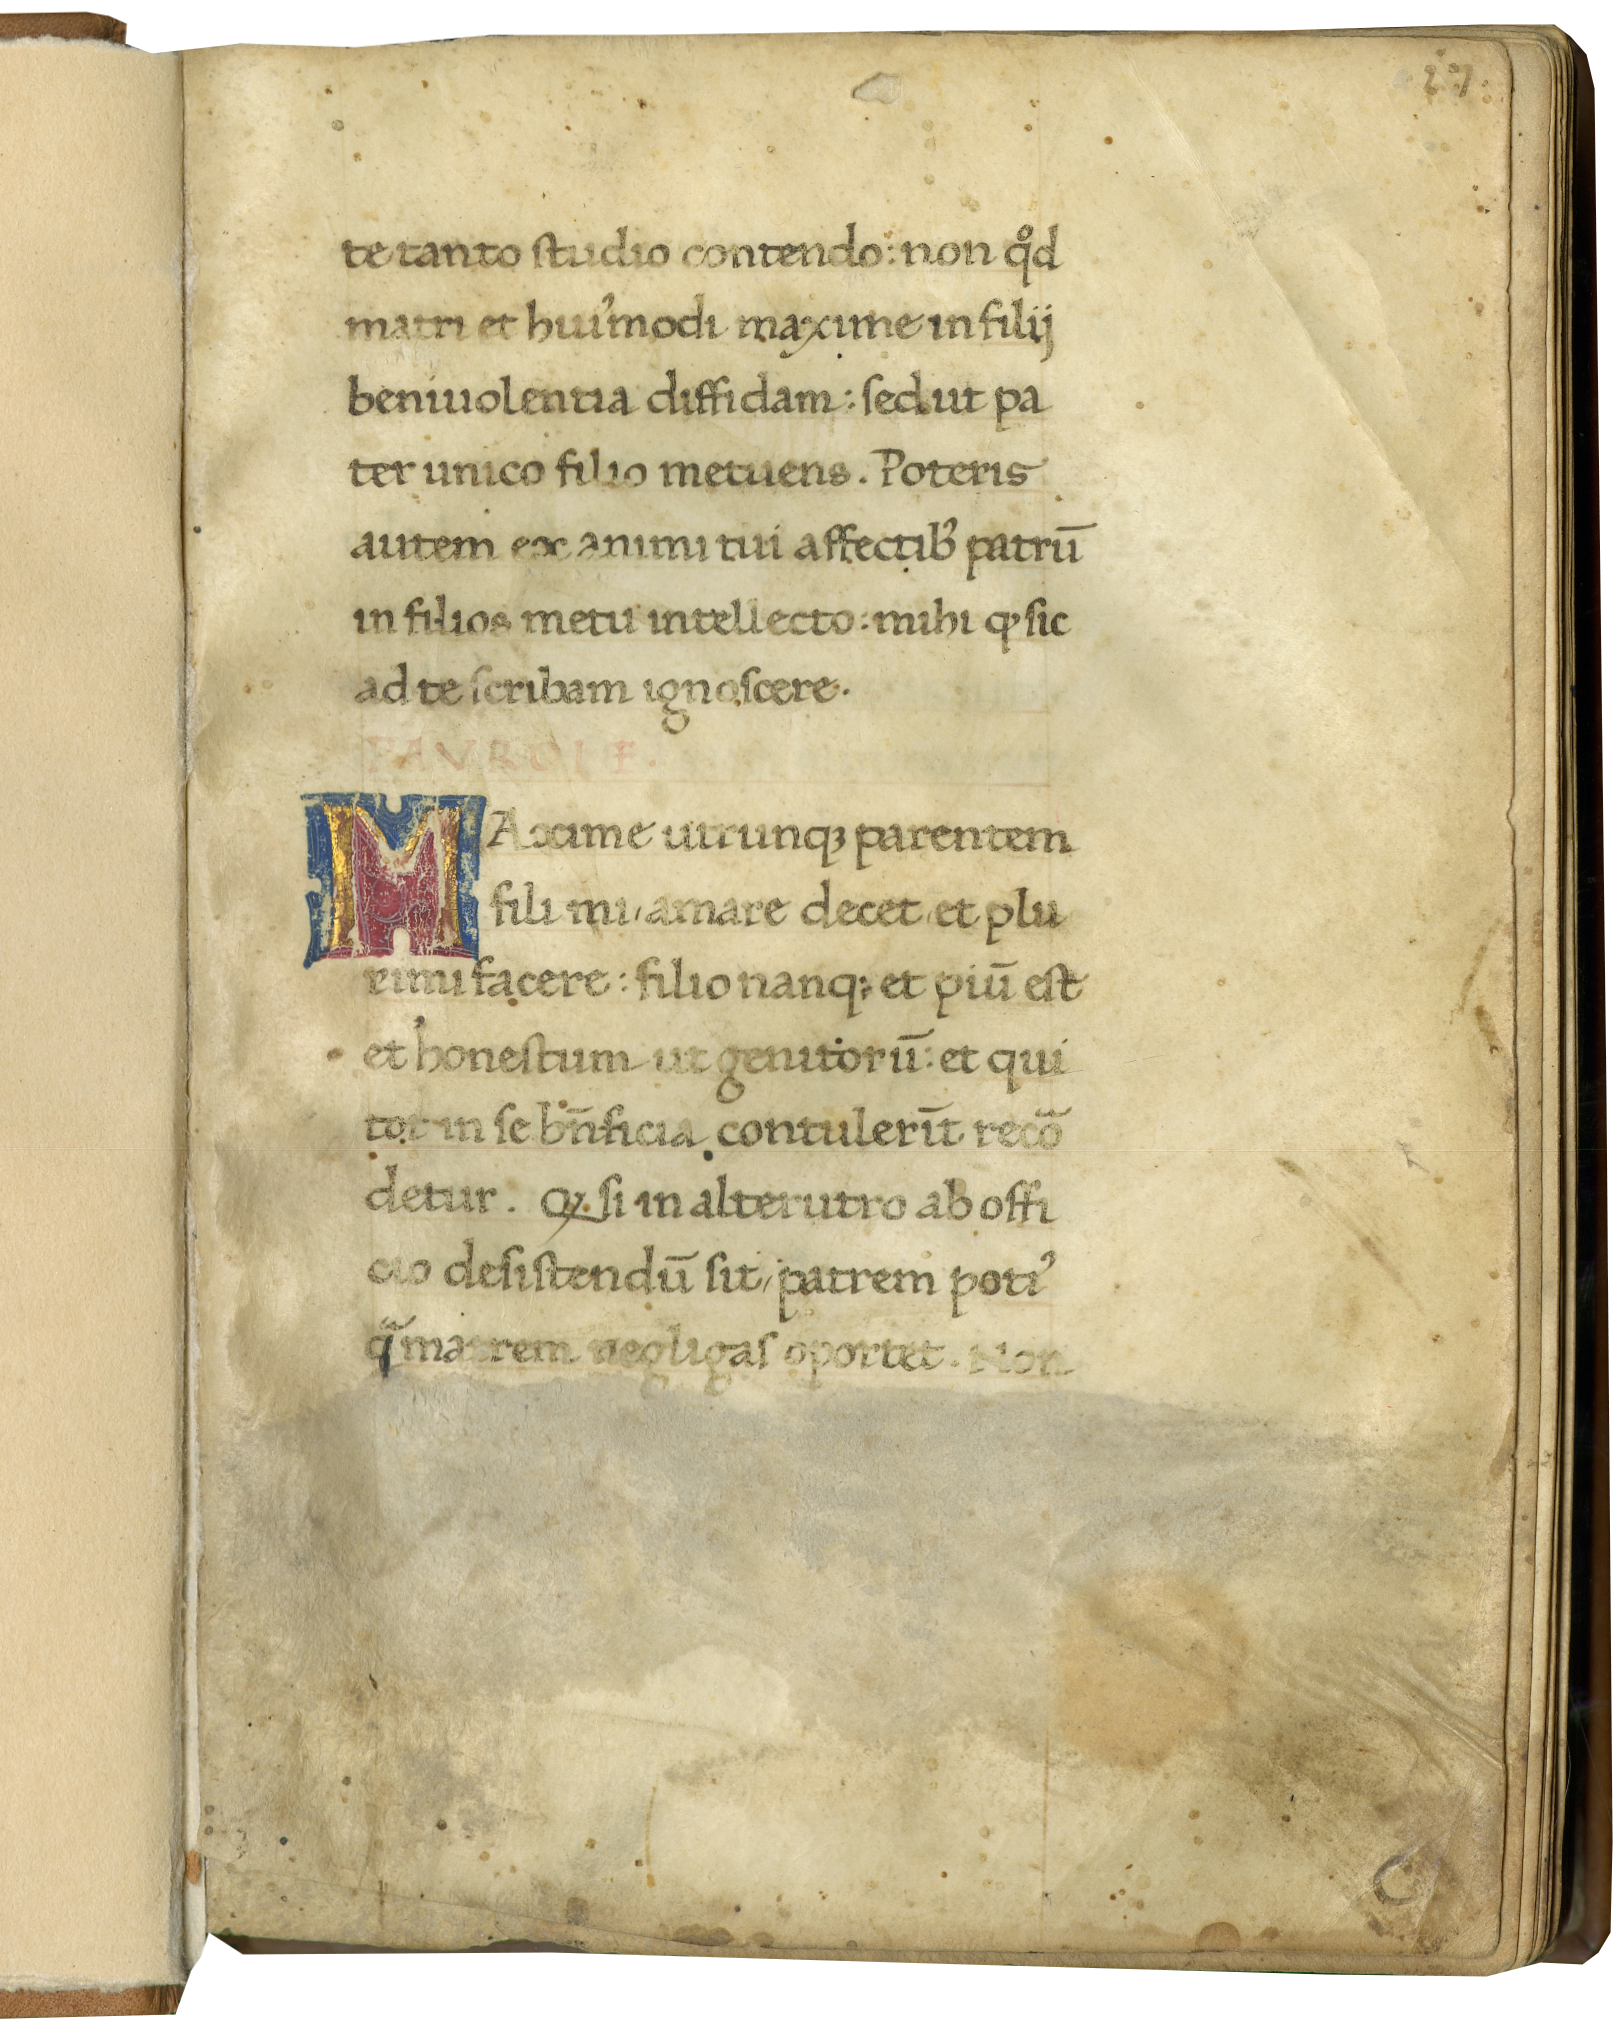 27
te tanto studio contendo: non qͦd
matri et huiꝰmodi maxime in filij
beniuolentia diffidam: sed ut pa
ter unico filio metuens. Poteris
autem ex animi tui affectibꝰ patrū
in filios metu intellecto: mihi ꝙ sic
ad te scribam ignoscere.
MAxime utrunqꝫ parentem
fili mi, amare decet, et plu
rimi facere: filio nanqꝫ et piū est
et honestum ut genitorū: et qui
tot in se bn̄ficia contulerīt recō
detur. Qꝫ si in alterutro ab offi
cio desistendū sit, patrem potiꝰ
q̄ matrem negligas oportet. Non